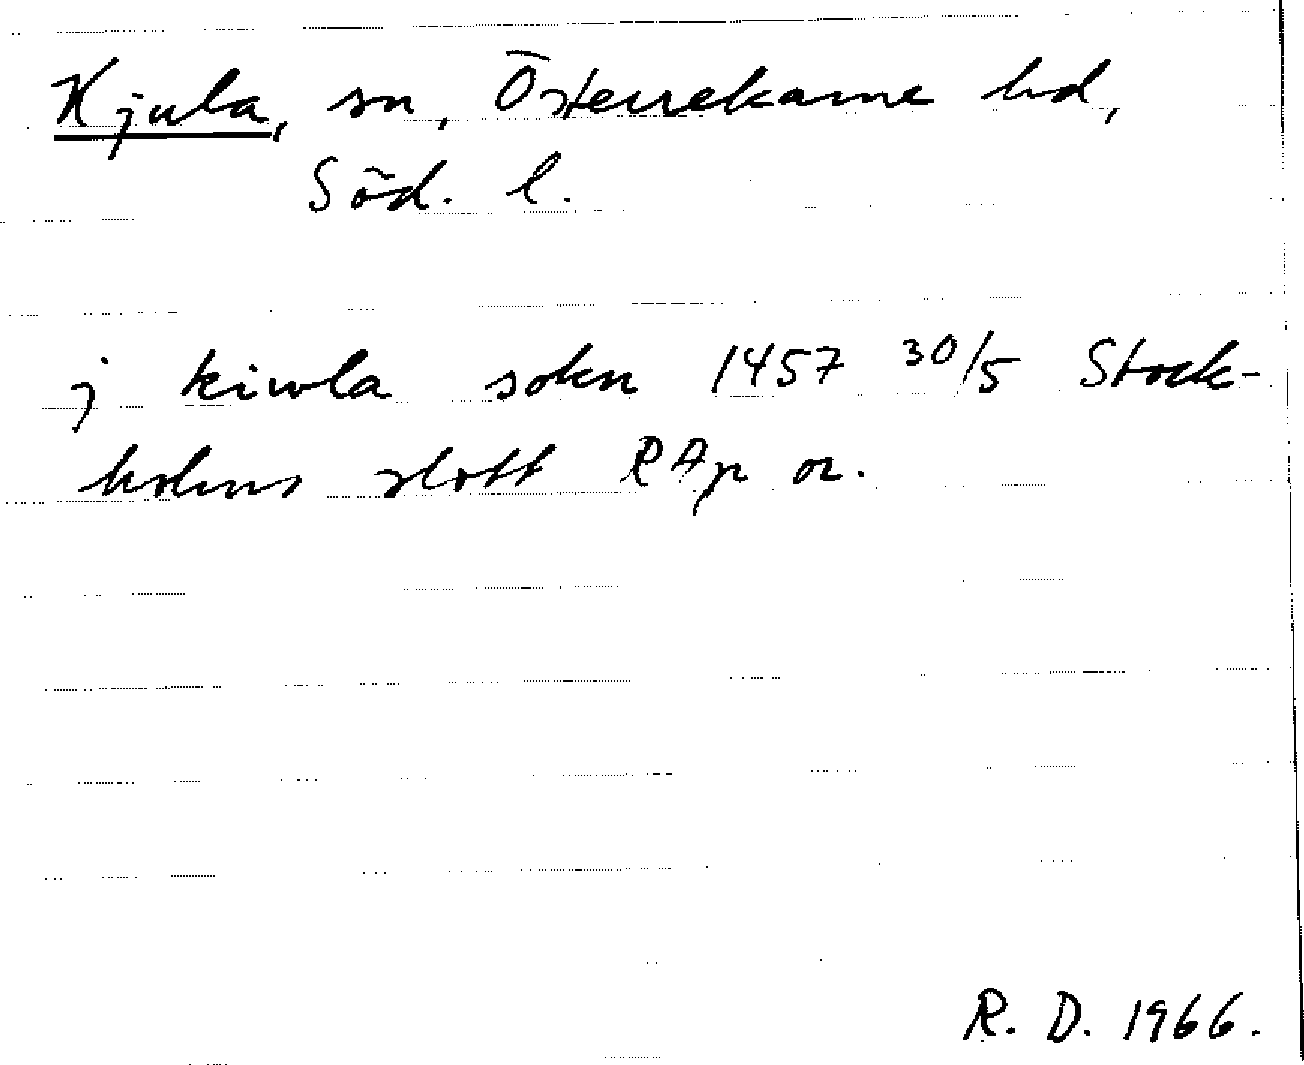 Kjula, sn, Österrekarne hd,
Söd. l.
j kiwla sokn 1457 30/5 Stock-
holms slott RAp or.
R. D. 1966.